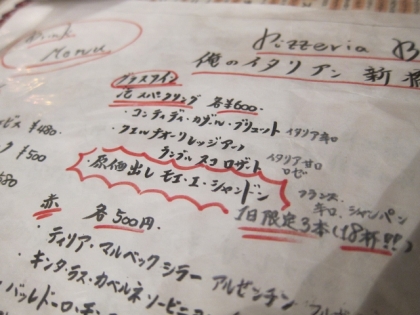 drink
Menu
Pizzeria
俺のイタリアン 新
グラスワイン
泡 スパークリング 各¥600.
・コンティ・ディ・カヴール・ブリュット イタリア 辛口
・フェルナオ・リレッジアーノ
ランブルスコ ロザート イタリア 甘口
ロゼ
原価出し モエ・エ・シャンドン フランス
辛口 シャンパン
1日限定3本(18杯!!)
¥480.
¥500
赤 各500円.
・ティリア・マルベック シラー アルゼンチン
・キンタ・ラス・カベルネ・ソービニ